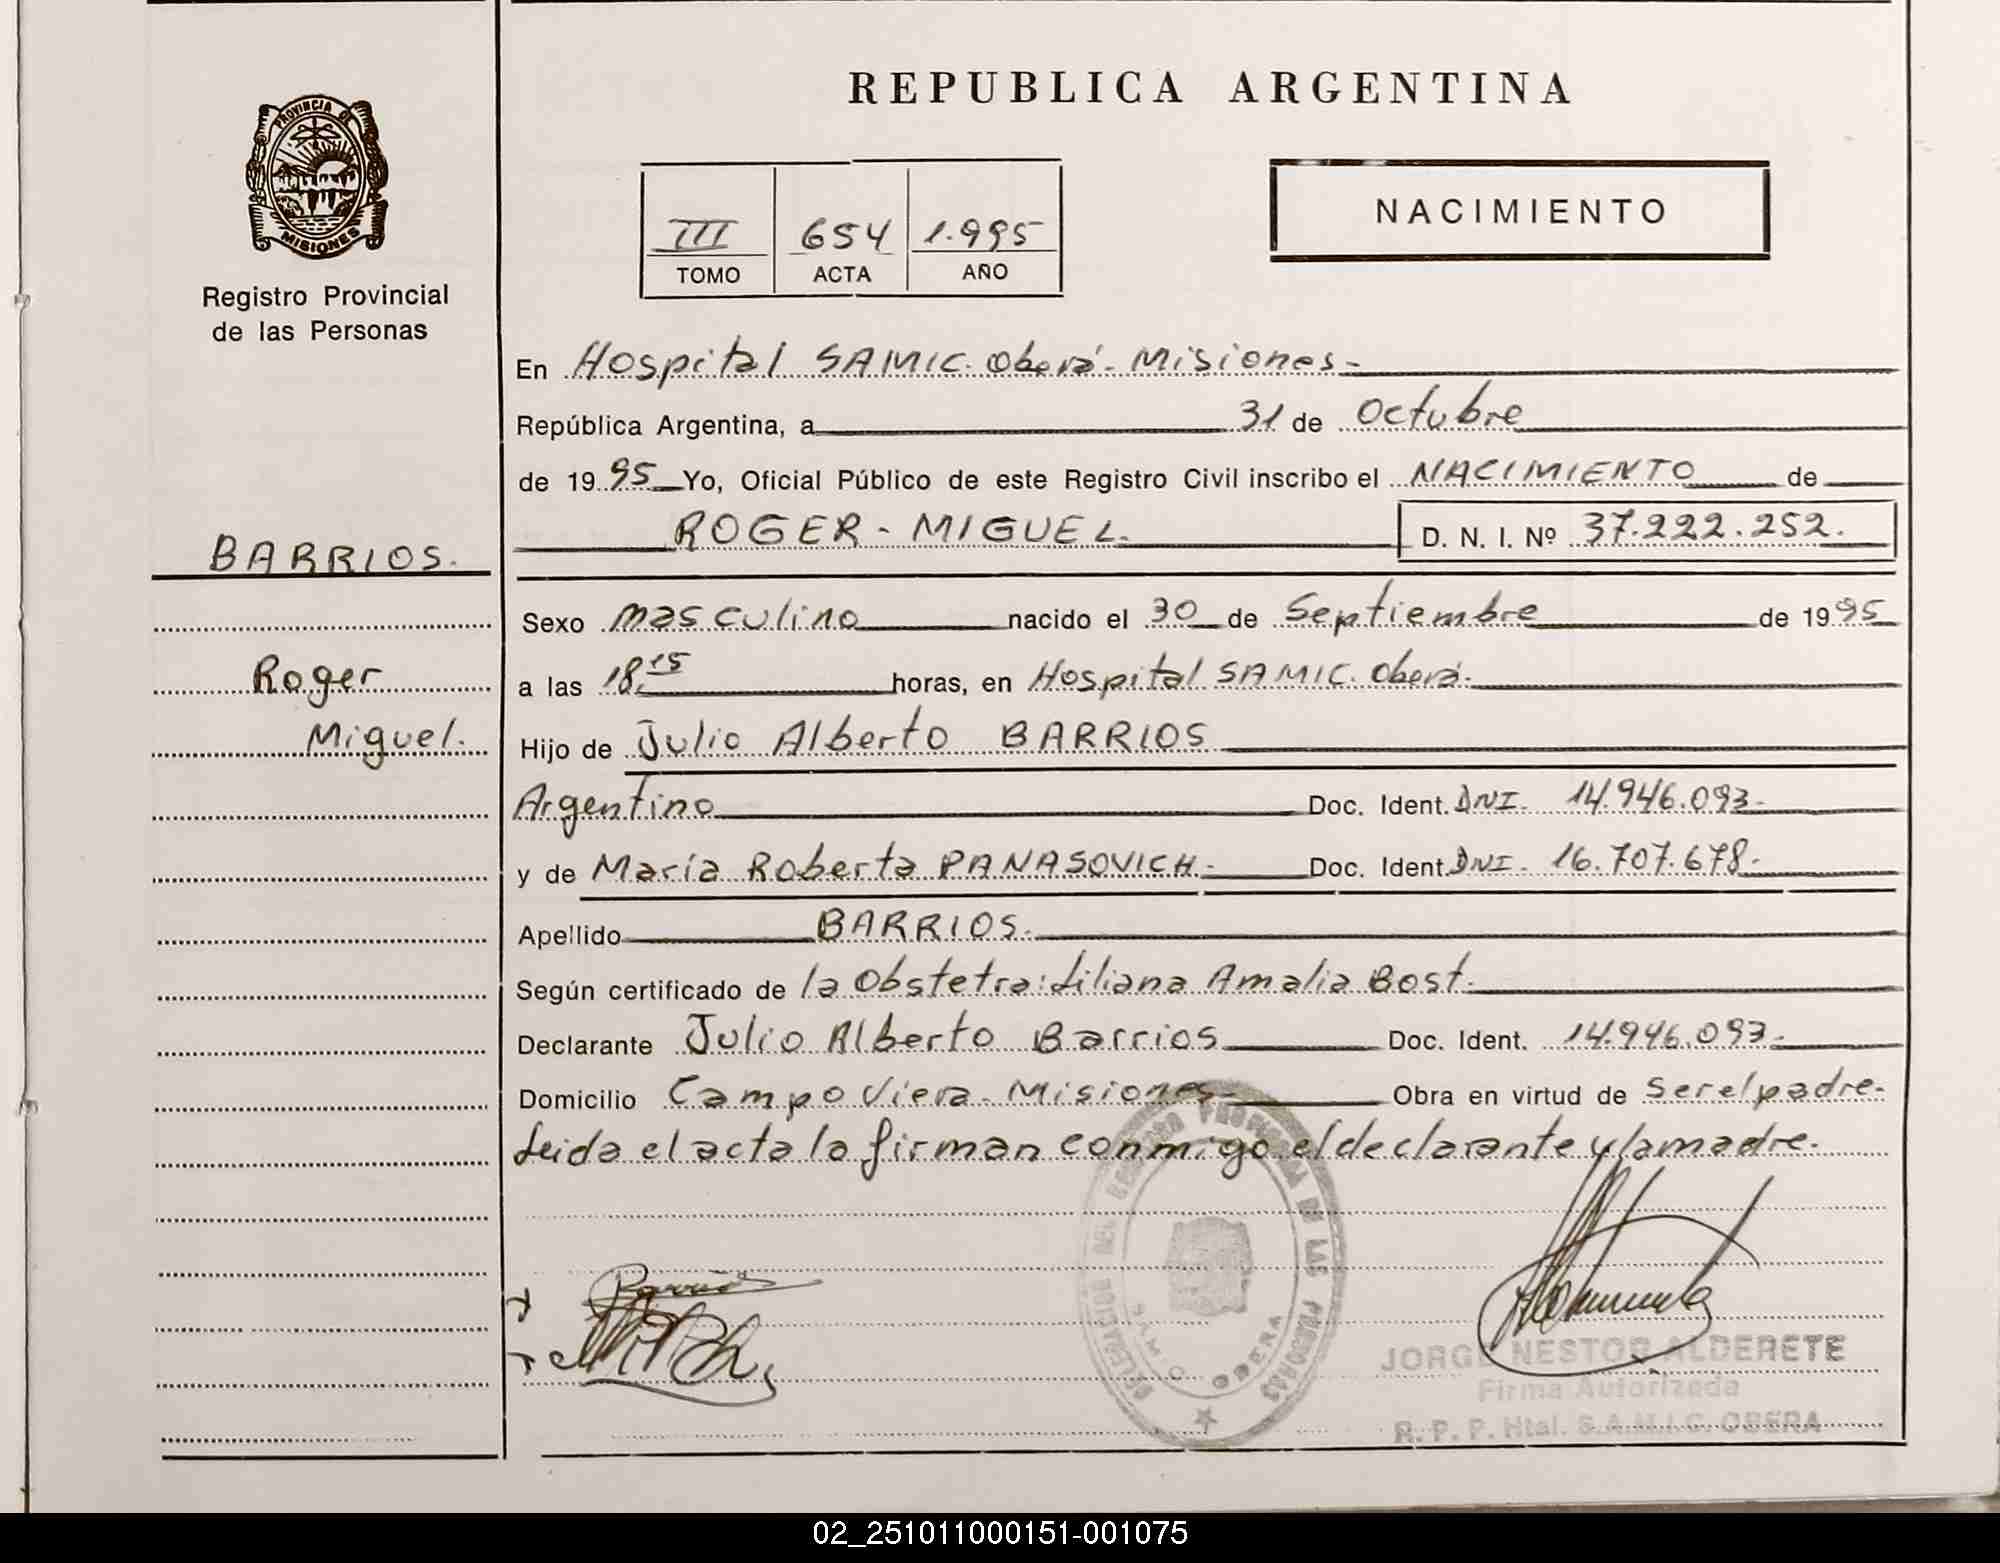 REPUBLICA ARGENTINA
PROVINCIA DE
MISIONES
Registro Provincial
de las Personas
III 654 1.995
TOMO ACTA AÑO
NACIMIENTO
En Hospital SAMIC. Oberá - Misiones -
República Argentina, a 31 de Octubre
de 1995 Yo, Oficial Público de este Registro Civil inscribo el NACIMIENTO de
ROGER - MIGUEL. D. N. I. Nº 37.222.252.
BARRIOS.
Roger
Miguel.
Sexo masculino nacido el 30 de Septiembre de 1995
a las 18,15 horas, en Hospital SAMIC. Oberá.
Hijo de Julio Alberto BARRIOS
Argentino Doc. Ident. DNI. 14.946.093-
y de María Roberta PANASOVICH - Doc. Ident. DNI - 16.707.678-
Apellido BARRIOS.
Según certificado de la Obstetra: Liliana Amalia Bost.
Declarante Julio Alberto Barrios Doc. Ident. 14.946.093-
Domicilio Campo Viera - Misiones - Obra en virtud de ser el padre-
Leida el acta la firman conmigo el declarante y la madre.
DELEGACION DEL REGISTRO PROVINCIAL DE LAS PERSONAS
OBERA
Barrios
JORGE NESTOR ALDERETE
Firma Autorizada
R. P. P. Htal. S.A.M.I.C. OBERA
02_251011000151-001075